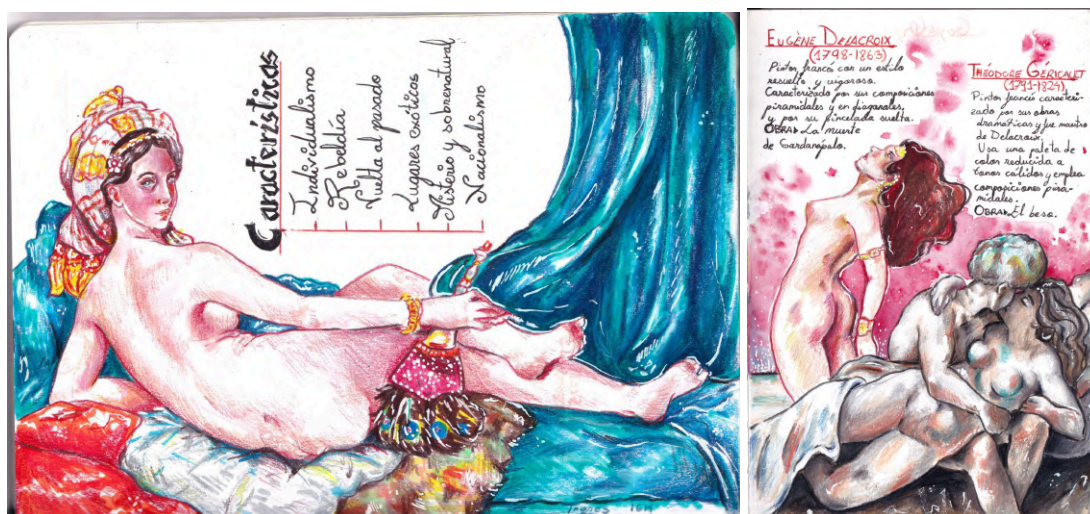 Características
Individualismo
Rebeldía
Vuelta al pasado
Lugares exóticos
Misterio y sobrenatural
Nacionalismo
Ingres 1814
EUGÈNE DELACROIX
(1798-1863)
Pintor francés con un estilo
resuelto y vigoroso.
Caracterizado por sus composiciones
piramidales y en diagonales,
y por su pincelada suelta.
OBRA: La muerte
de Sardanápalo.
THÉODORE GÉRICAULT
(1791-1824)
Pintor francés caracteri-
zado por sus obras
dramáticas y fue maestro
de Delacroix.
Usa una paleta de
color reducida a
tonos cálidos y emplea
composiciones pira-
midales.
OBRA: El beso.